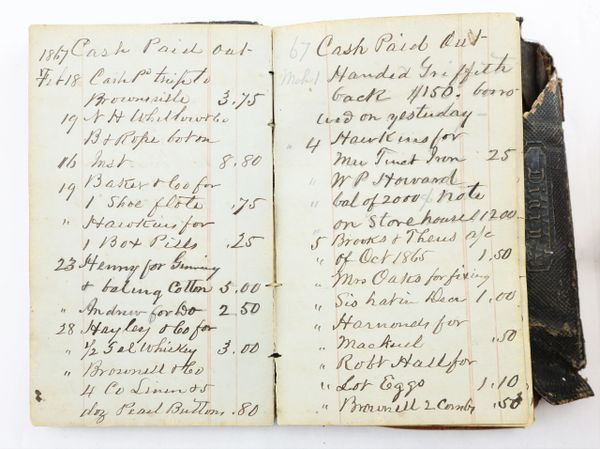 1867 Cash Paid out
Feb 18 Cash Pd trip to
Brownsville 3.75
19 N H Whitlow & Co
B & Rope bot on
16 Inst. 8.80
19 Baker & Co for
1 Shoe flote .75
" Hawkins for
1 Box Pills .25
23 Henry for Ginning
& baling Cotton 5.00
" Andrew for Do 2 50
28 Hayley & Co for
" 1/2 Gal Whiskey 3.00
" Brownell & Co
4 Co Linen & 5
doz Pearl Buttons .80
67 Cash Paid Out
Mch 1 Handed Griffith
back $150. borro
wed on yesterday
" 4 Hawkins for
Tinct Iron 25
" W P Howard
" bal of 2000 note
on Store house 1200
5 Brooks & Theus a/c
" of Oct 1865 1.50
" Mrs Oaks for fixing
" Sis hat in Decr 1.00
" Harmonds for
" Mackrel .50
" Robt Hall for
" Lot Eggs 1.10
" Brownell 2 Combs .50
DIARY